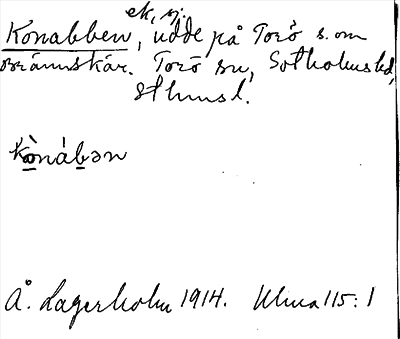 ek, sj.
Konabben, udde på Torö s. om
Brännskär. Torö sn, Sotholms hd,
Sthmsl.
kònábən
Å. Lagerholm 1914. Ulma 115:1